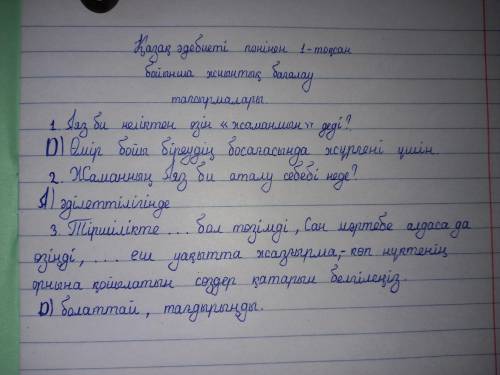 Қазақ әдебиеті пәнінен 1-тоқсан
бойынша жиынтық бағалау
тапсырмалары.
1. Аяз би неліктен өзін «жаманмын» деді?
D) Өмір бойы біреудің босағасында жүргені үшін.
2. Жаманның Аяз би аталу себебі неде?
A) әділеттілігінде
3. Тіршілікте ... бол төзімді, Сан мәртебе алдаса да
өзіңді, ... еш уақытта жазғырма,- көп нүктенің
орнына қойылатын сөздер қатарын белгілеңіз.
D) болаттай, тағдырыңды.